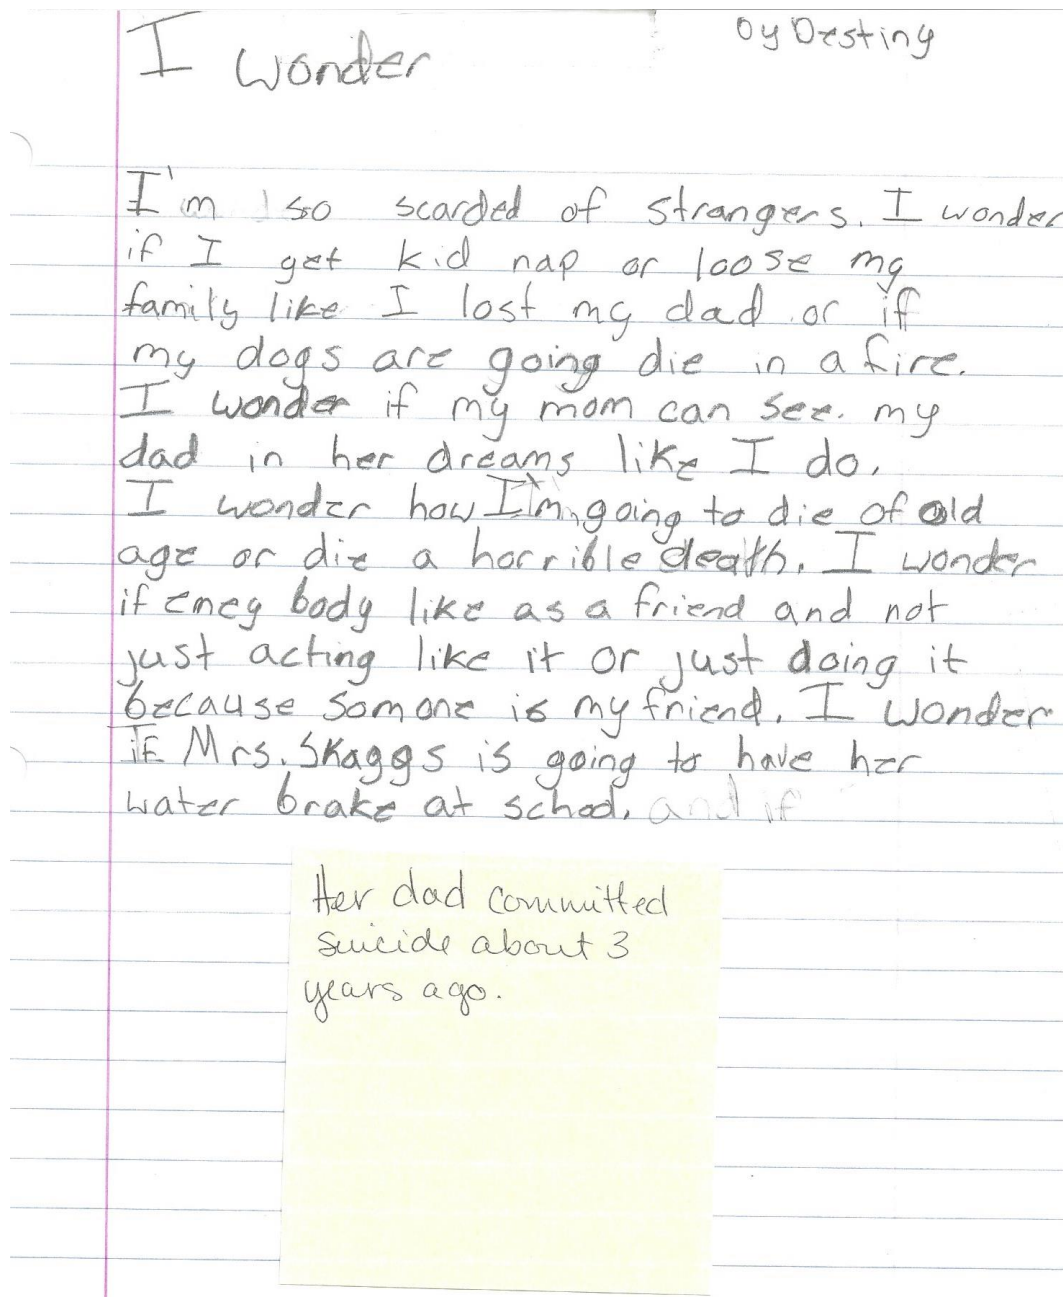 I wonder
by Destiny
I'm so scarded of strangers. I wonder
if I get kid nap or loose my
family like I lost my dad or if
my dogs are going die in a fire.
I wonder if my mom can see my
dad in her dreams like I do.
I wonder how I'm going to die of old
age or die a horrible death. I wonder
if body like as a friend and not
just acting like it or just doing it
because somone is my friend. I wonder
if Mrs. Skaggs is going to have her
water brake at school. and if
Her dad committed
suicide about 3
years ago.